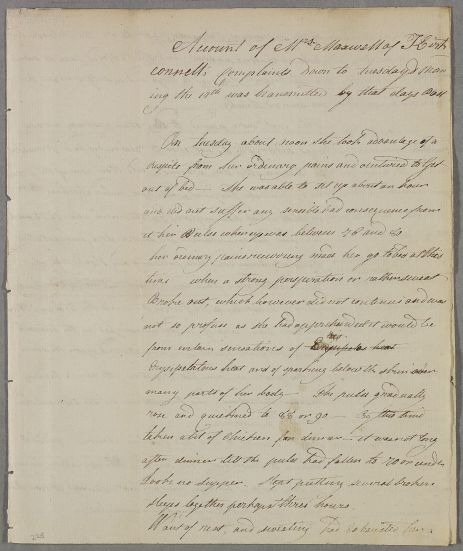 Account of Mrs Maxwell of Kirk
connell's complaints down to tuesday's Morn
ing the 10th was transmitted by that days Post
On tuesday about noon she took advantage of a
respite from her ordinary pains and ventured to Get
out of bed — She was able to sit up about an hour
and did not suffer any sensible bad consequence from
it her Pulse when up was between 78 and 80
her ordinary pains recurring made her go to bed at this
time when a strong perspiration or rather sweat
Broke out, which however did not continue and was
not so profuse as she had apprehended it would be
from certain sensations of
Erysipelatous heat and of sparking below the skin over
many parts of her body — The pulse gradually
rose and quickened to 88 or 90 — By this time
taken a bit of chicken for dinner — it was not long
after dinner till the pulse had fallen to 70 or under
Took no supper. Slept putting several broken
sleeps together perhaps three hours.
Want of rest, and sweating had exhausted her
228